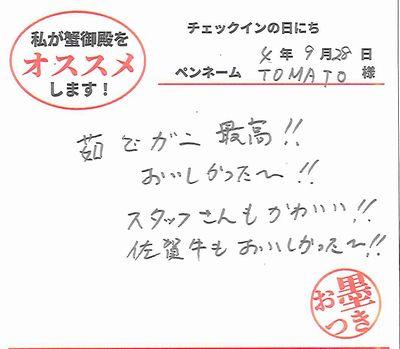 私が蟹御殿を
オススメ
します！
チェックインの日にち
4年9月28日
ペンネーム TOMATO 様
茹でガニ 最高!!
おいしかった〜!!
スタッフさんもかわいい!!
佐賀牛もおいしかった〜!!
お墨つき